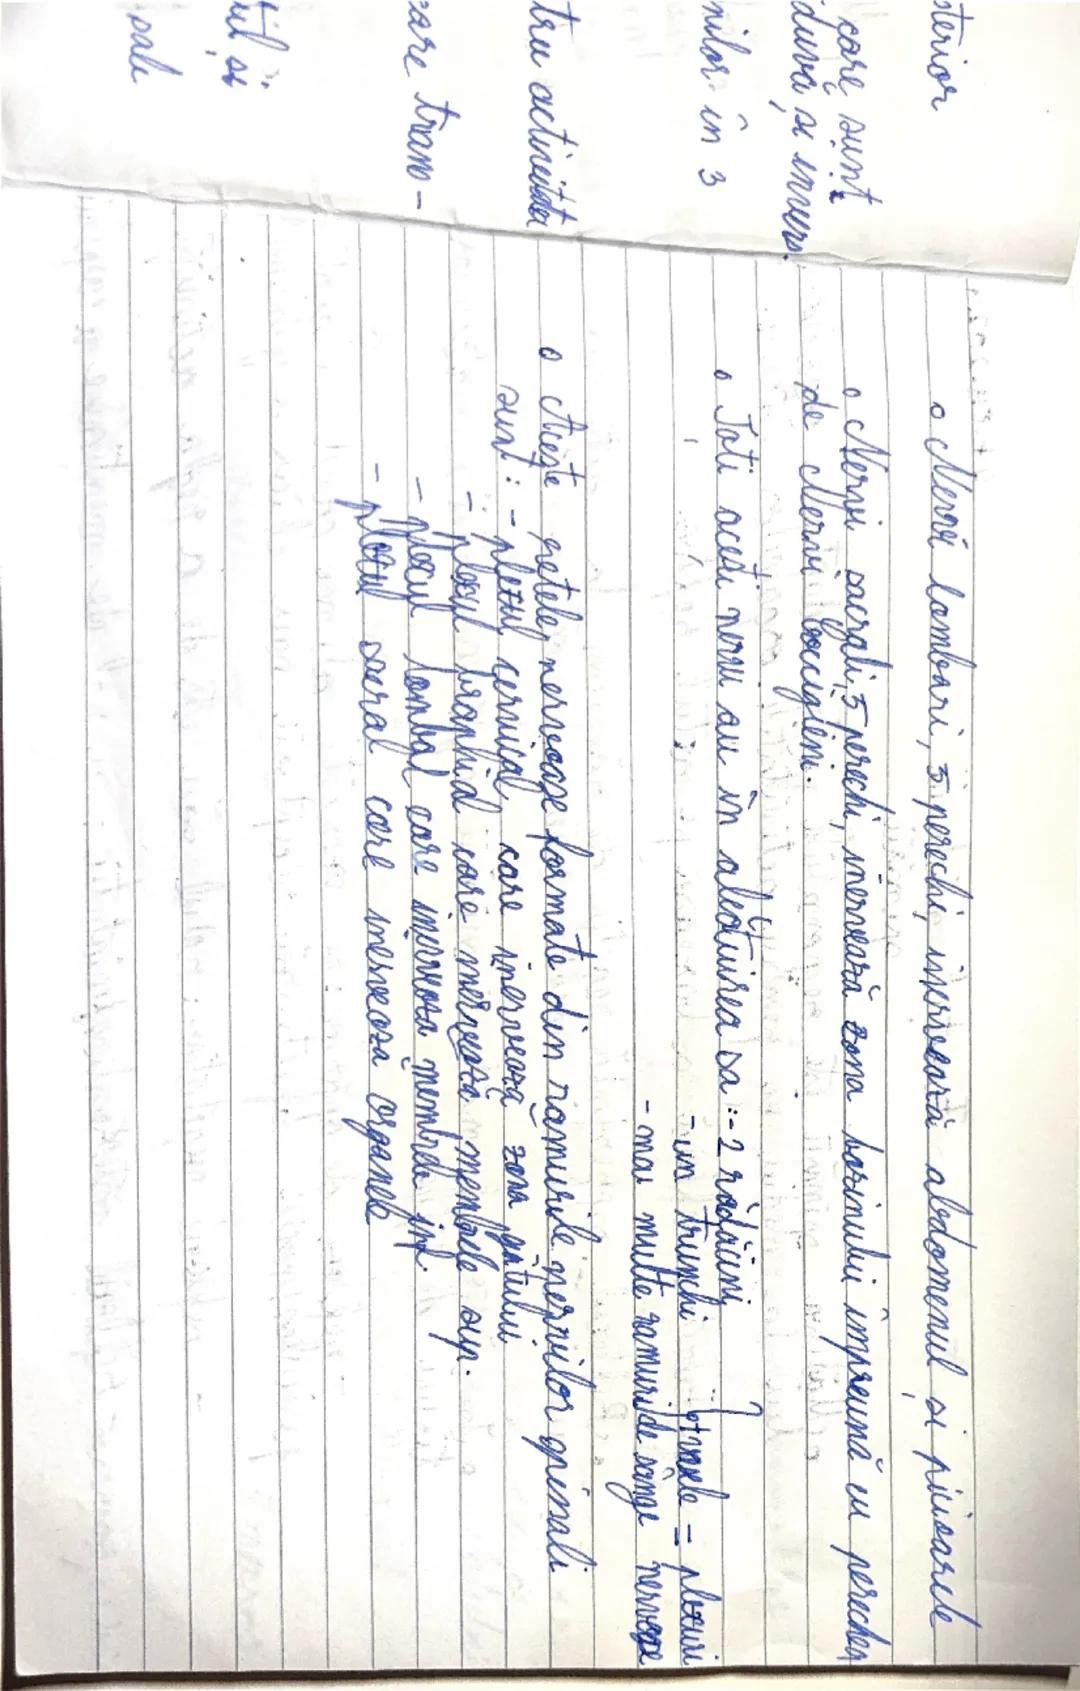 sterior
care sunt
duva și invers.
nilor în 3
tru activitatea
care trans-
tul și
sali
o Nervii lombari, 5 perechi, inervează abdomenul și picioarele
o Nervii sacrali, 5 perechi, inervează zona bazinului împreună cu perechea
de Nervi coccigieni.
o Toți acești nervi au în alcătuirea sa :- 2 rădăcini
- un trunchi = plexuri
- mai multe ramuri de nervoase
o Aceste rețele nervoase formate din ramurile nervilor spinali
sunt: - plexul cervical care inervează zona gâtului
- plexul brahial care inervează membrele sup.
- plexul lombal care inervează membrele inf.
- plexul sacral care inerveaza organele